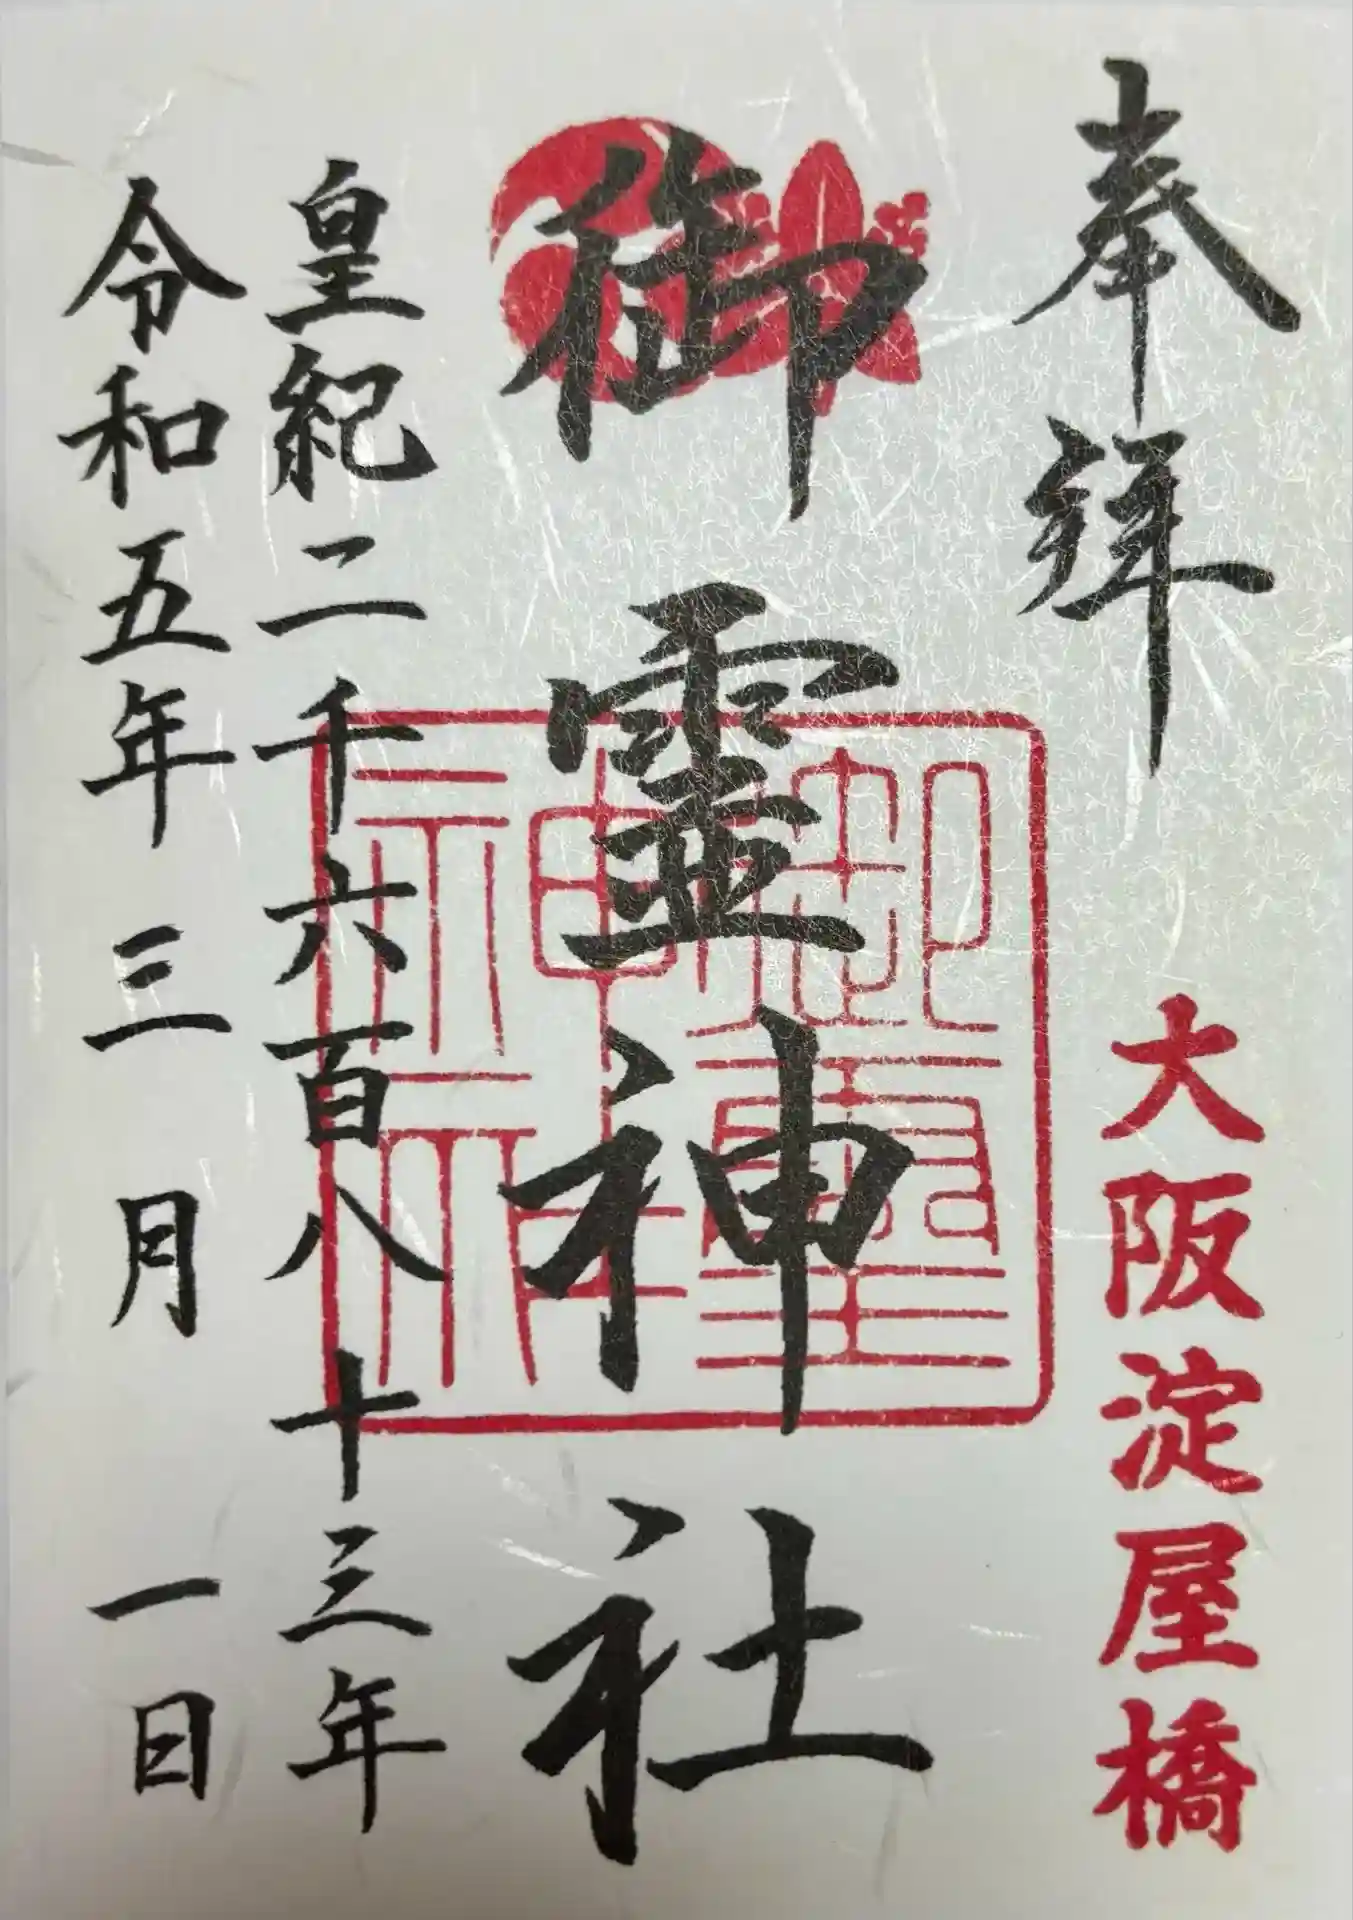 奉拝
大阪淀屋橋
御霊神社
御霊神社
皇紀二千六百八十三年
令和五年三月一日